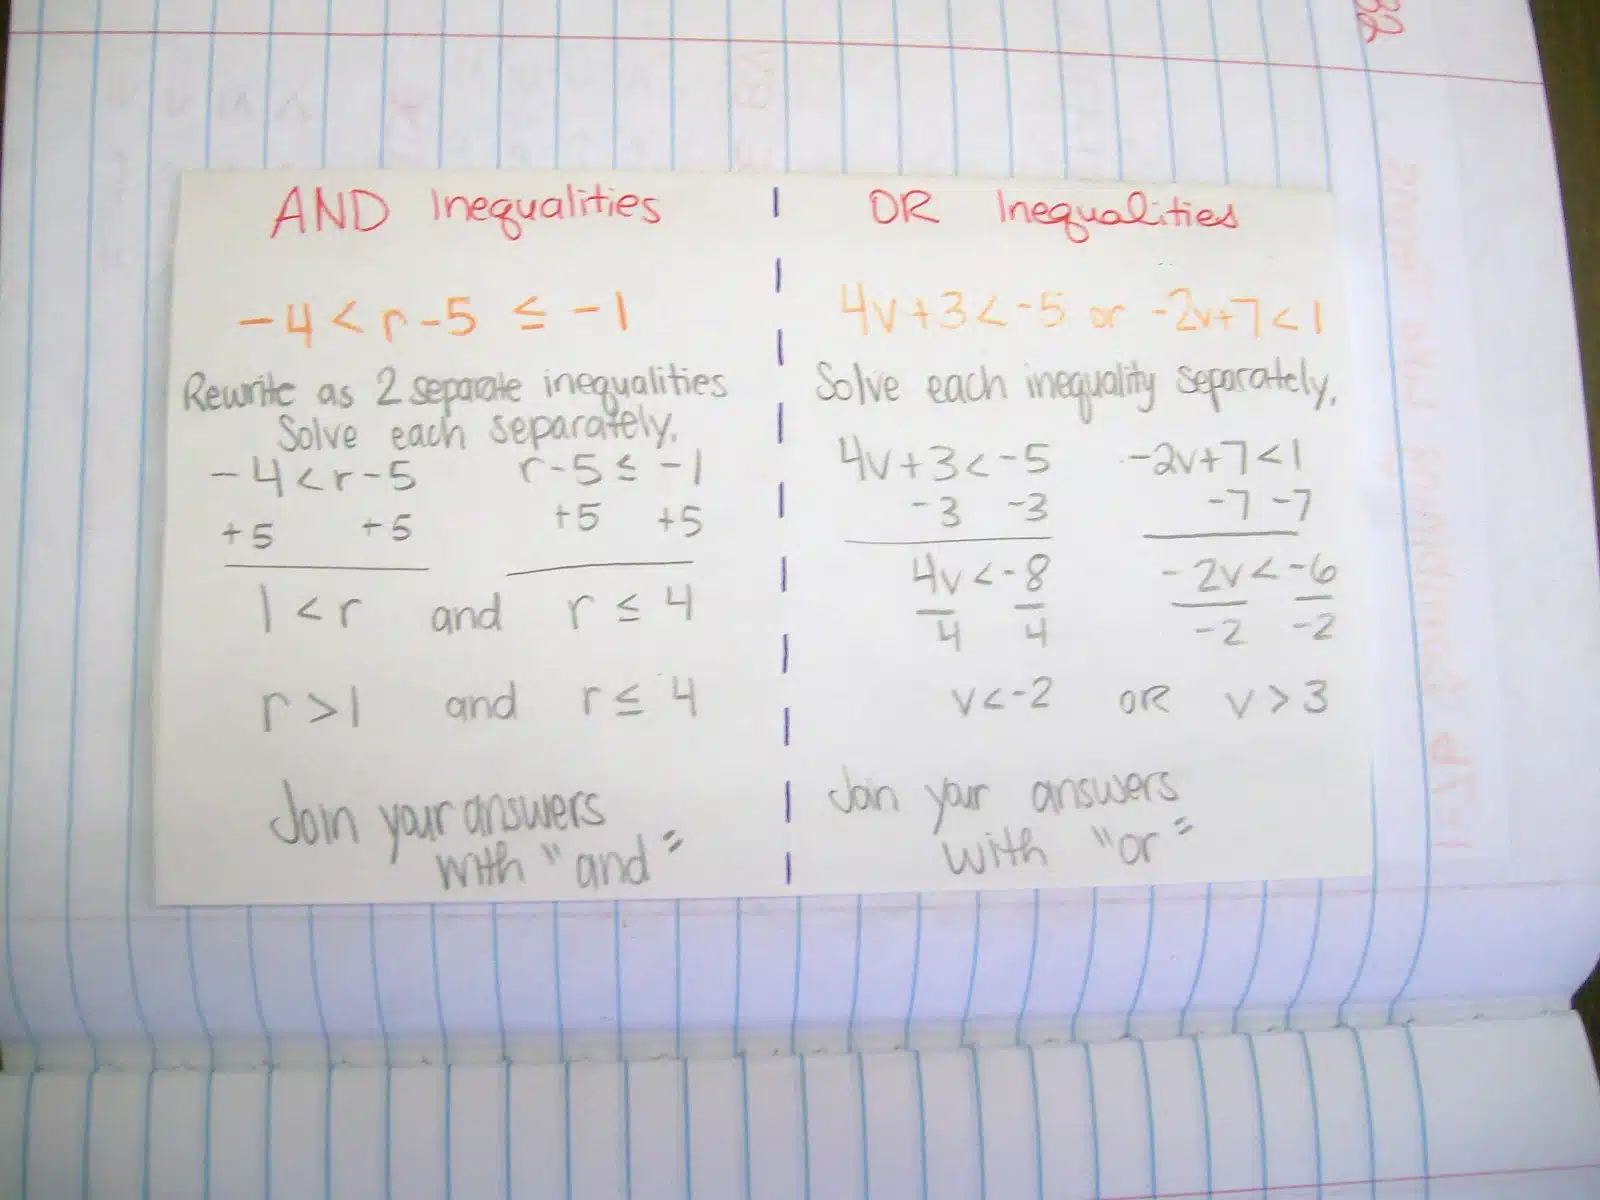 32
AND Inequalities
-4 < r - 5 ≤ -1
Rewrite as 2 separate inequalities
Solve each separately.
-4 < r - 5 r - 5 ≤ -1
+5 +5 +5 +5
1 < r and r ≤ 4
r > 1 and r ≤ 4
Join your answers
with "and"
OR Inequalities
4v + 3 < -5 or -2v + 7 < 1
Solve each inequality separately.
4v + 3 < -5 -2v + 7 < 1
-3 -3 -7 -7
4v < -8 -2v < -6
4 4 -2 -2
v < -2 OR v > 3
Join your answers
with "or"